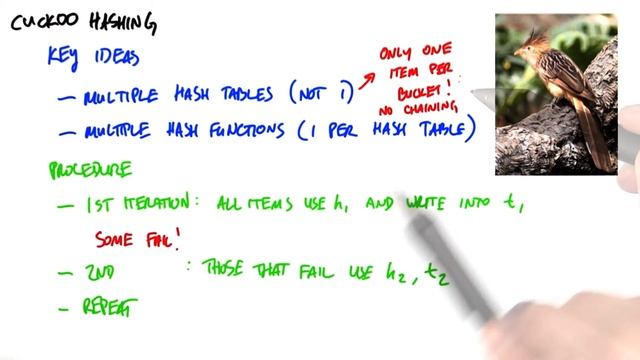 CUCKOO HASHING
KEY IDEAS
- MULTIPLE HASH TABLES (NOT 1)
ONLY ONE
ITEM PER
BUCKET!
NO CHAINING
- MULTIPLE HASH FUNCTIONS (1 PER HASH TABLE)
PROCEDURE
- 1ST ITERATION: ALL ITEMS USE h₁ AND WRITE INTO t₁
SOME FAIL!
- 2ND : THOSE THAT FAIL USE h₂, t₂
- REPEAT